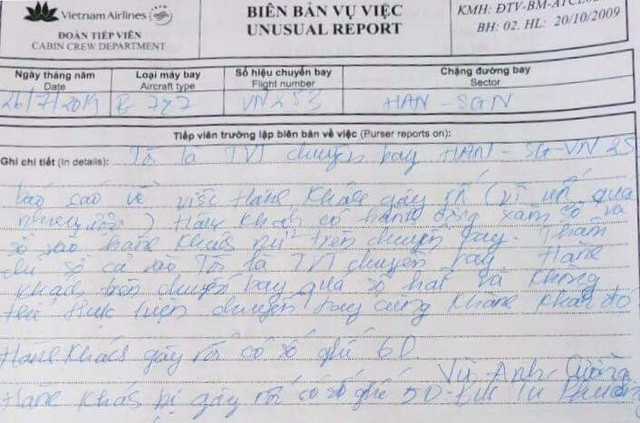 Vietnam Airlines
ĐOÀN TIẾP VIÊN
CABIN CREW DEPARTMENT
BIÊN BẢN VỤ VIỆC
UNUSUAL REPORT
KMH: ĐTV-BM-ATCL
BH: 02. HL: 20/10/2009
Ngày tháng năm Loại máy bay Số hiệu chuyến bay Chặng đường bay
Date Aircraft type Flight number Sector
26/7/2019 B 787 VN253 HAN - SGN
Tiếp viên trưởng lập biên bản về việc (Purser reports on):
Ghi chi tiết (In details): Tôi là TVT chuyến bay HAN - SG - VN 25
báo cáo về việc Hành khách gây rối (vì uống quá
nhiều rượu) Hành khách có hành động xàm sỡ và
sờ vào hành khách nữ trên chuyến bay. Thậm
chí sờ cả vào Tôi là TVT chuyến bay. Hành
khách trên chuyến bay quá sợ hãi và không
thể thực hiện chuyến bay cùng hành khách đó
Hành khách gây rối có số ghế 6D
Vũ Anh Cường
Hành khách bị gây rối có số ghế 5D